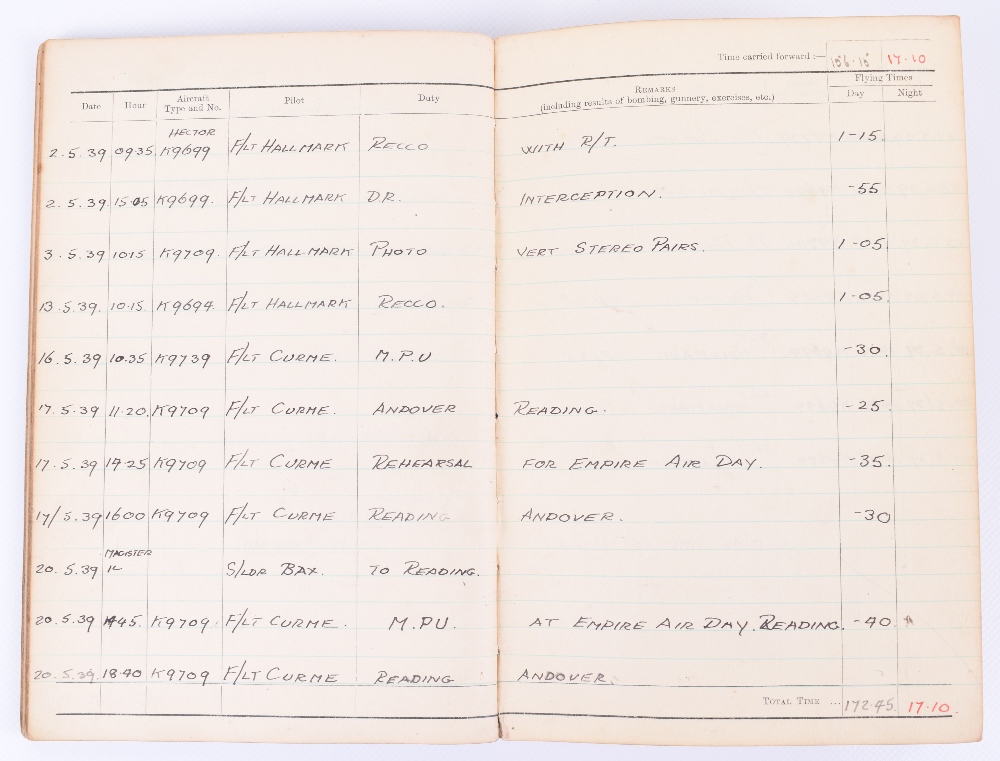 Time carried forward :— 156·15 17·10
Flying Times
Date Hour Aircraft Type and No. Pilot Duty REMARKS (including results of bombing, gunnery, exercises, etc.) Day Night
HECTOR
2.5.39 0935 K9699 F/LT HALLMARK RECCO WITH R/T. 1-15.
2.5.39. 15.05 K9699. F/LT HALLMARK D.R. INTERCEPTION. -55
3.5.39 1015 K9709. F/LT HALLMARK PHOTO VERT STEREO PAIRS. 1-05
13.5.39. 10.15. K9694. F/LT HALLMARK RECCO. 1-05.
16.5.39 10.35 K9739 F/LT CURME. M.P.U -30.
17.5.39 11.20. K9709 F/LT CURME. ANDOVER READING. -25.
17.5.39 1425 K9709 F/LT CURME REHEARSAL FOR EMPIRE AIR DAY. -35.
17/5.39 1600 K9709 F/LT CURME READING ANDOVER. -30
MAGISTER
20.5.39 S/LDR BAX. TO READING.
20.5.39 1445. K9709. F/LT CURME. M.P.U. AT EMPIRE AIR DAY. READING. -40
20.5.39. 18.40 K9709 F/LT CURME READING ANDOVER.
TOTAL TIME ... 172.45. 17·10.